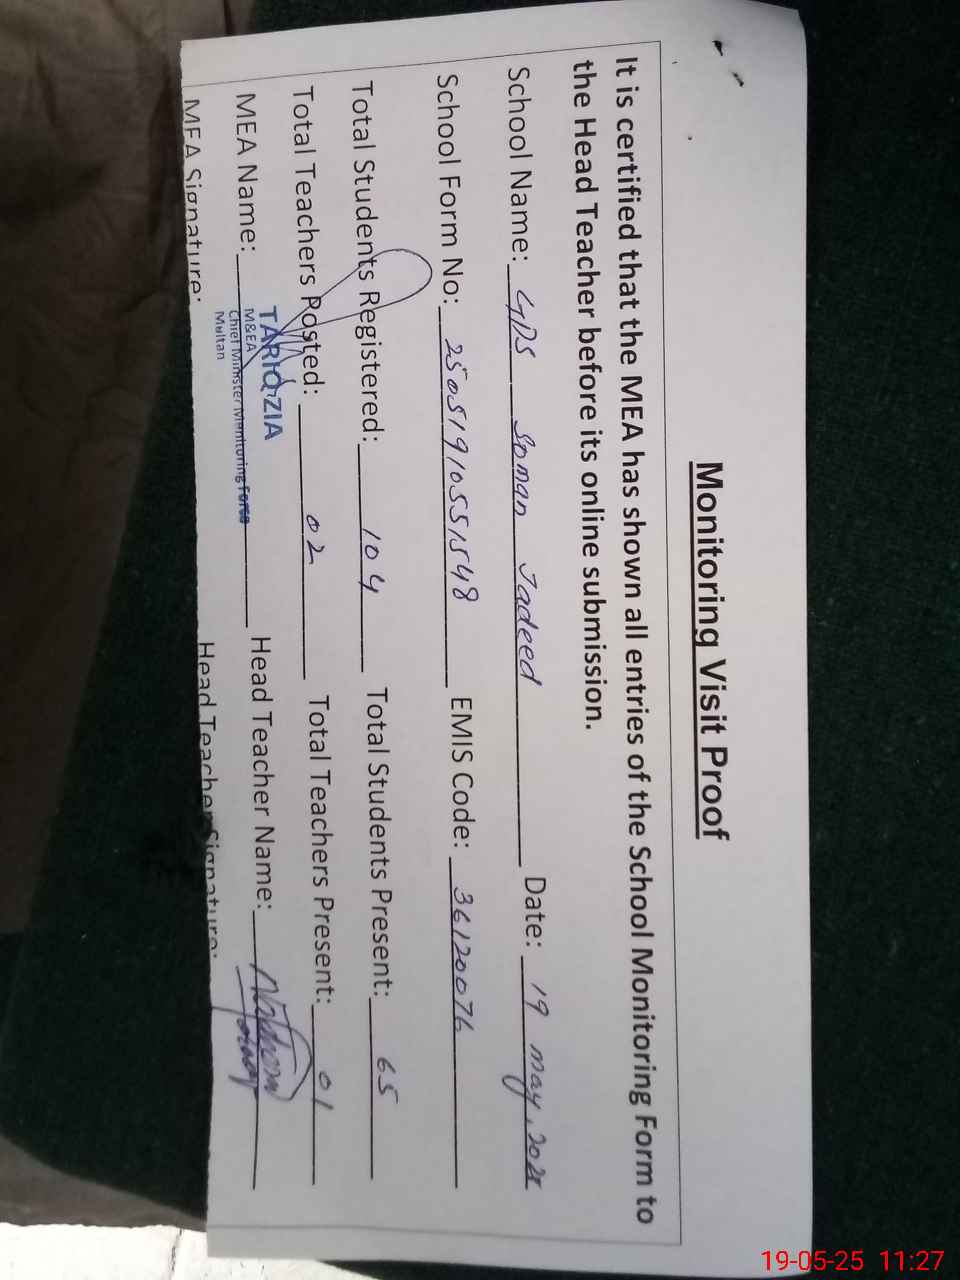 Monitoring Visit Proof
It is certified that the MEA has shown all entries of the School Monitoring Form to
the Head Teacher before its online submission.
School Name: GPS Soman Jadeed Date: 19 May, 202
School Form No: 25051910551548 EMIS Code: 36120076
Total Students Registered: 104 Total Students Present: 65
Total Teachers Posted: 02 Total Teachers Present: 01
MEA Name: TARIQ ZIA Head Teacher Name:
M&EA
Chief Minister Monitoring Force
Multan
MEA Signature: Head Teacher Signature:
19-05-25 11:27